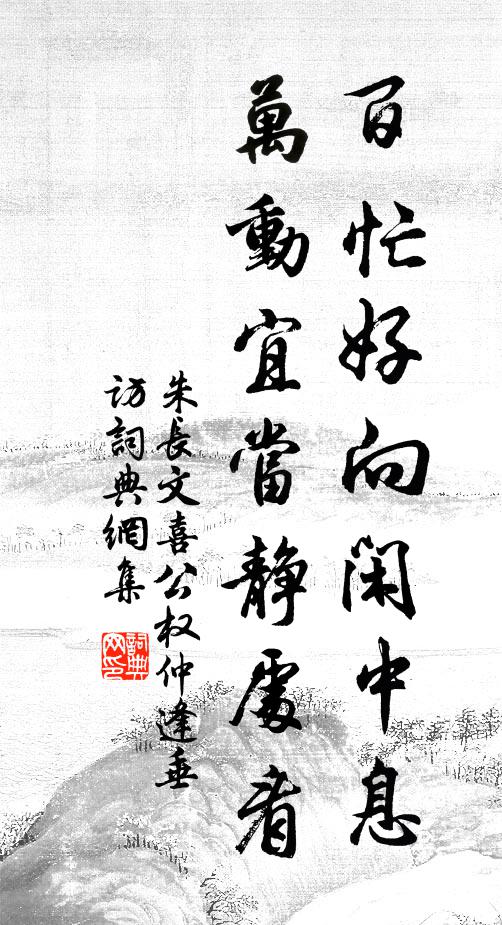 百忙好向閑中息
萬動宜當靜處看
朱長文喜公权仲逢垂
訪詞典網集
詞典
网印